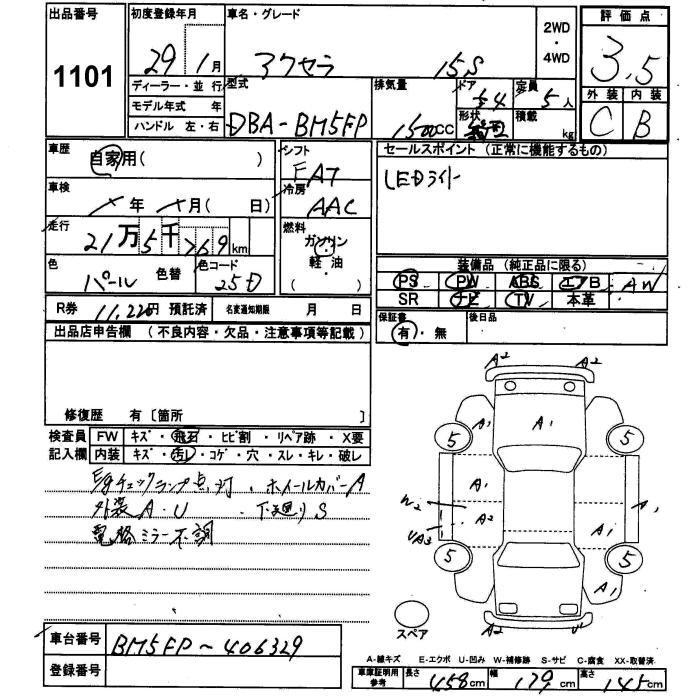 出品番号
1101
初度登録年月
29年 1月
ディーラー・並行
モデル年式 年
ハンドル 左・右
車名・グレード
アクセラ 15S
2WD
・
4WD
型式
DBA-BM5FP
排気量
1500CC
ドア
4
形状
定員
5人
積載
kg
評価点
3.5
外装 内装
C B
車歴
自家用( )
車検
年 月( 日)
走行
21万5千769km
色
パール 色替
色コード
25D
シフト
FAT
冷房
AAC
燃料
ガソリン
軽・油
( )
セールスポイント (正常に機能するもの)
LEDライト
装備品 (純正品に限る)
PS PW ABS エアB AW
SR ナビ TV 本革
R券 11,220円 預託済 名変通知期限 月 日
保証書
有・無
後日品
出品店申告欄 (不良内容・欠品・注意事項等記載)
修復歴 有〔箇所 〕
検査員
記入欄
FW キズ・飛石・ヒビ割・リペア跡・X要
内装 キズ・汚レ・コゲ・穴・スレ・キレ・破レ
Egチェックランプ点灯・ホイールカバーA
外装A・U ・下廻りS
電格ミラー不調
A2 A2
A1 A1
5 5
A1
W2 A2 A1
UA3
5 5
A1
A2 U1
スペア
車台番号
BM5FP~406329
登録番号
A-線キズ E-エクボ U-凹み W-補修跡 S-サビ C-腐食 XX-取替済
車庫証明用
参考
長さ 458cm 幅 179cm 高さ 145cm